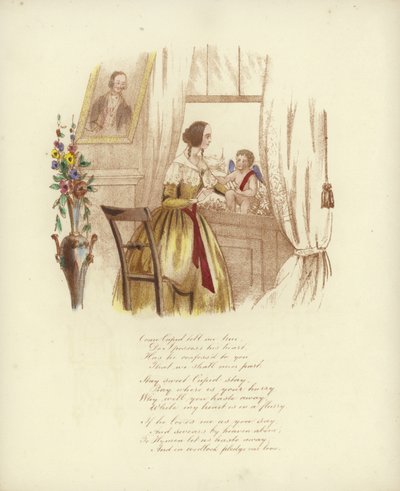 Come Cupid tell me true,
Do I possess his heart,
Has he confess'd to you
That we shall never part.
Stay sweet Cupid stay,
Pray where is your hurry
Why will you haste away
While my heart is in a flurry
If he loves me as you say
And swears by heaven above;
To Hymen let us haste away,
And in wedlock pledge our love.